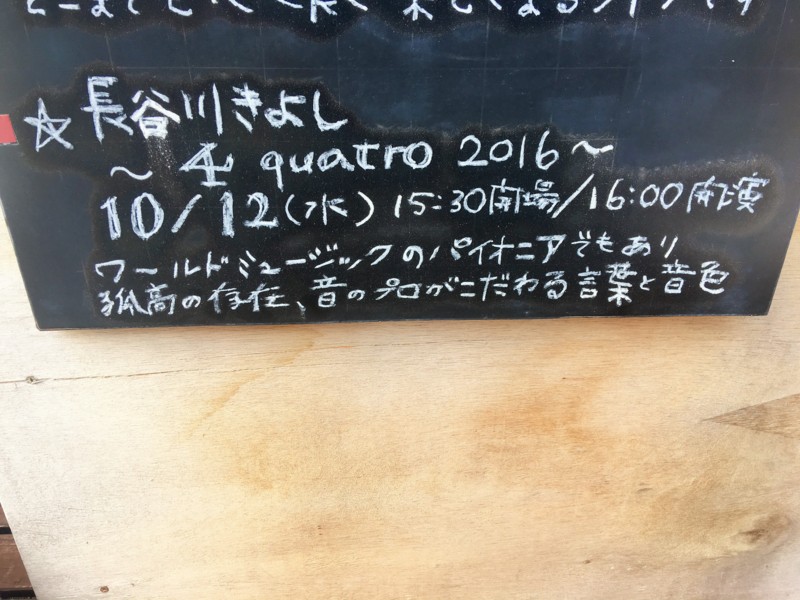 ☆ 長谷川きよし
～ 4 quatro 2016～
10/12(水) 15:30開場/16:00開演
ワールドミュージックのパイオニアでもあり
孤高の存在、音のプロがこだわる言葉と音色